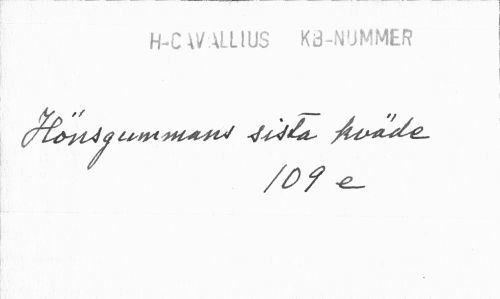 H-CAVALLIUS KB-NUMMER
Hönsgummans sista kväde
109 e